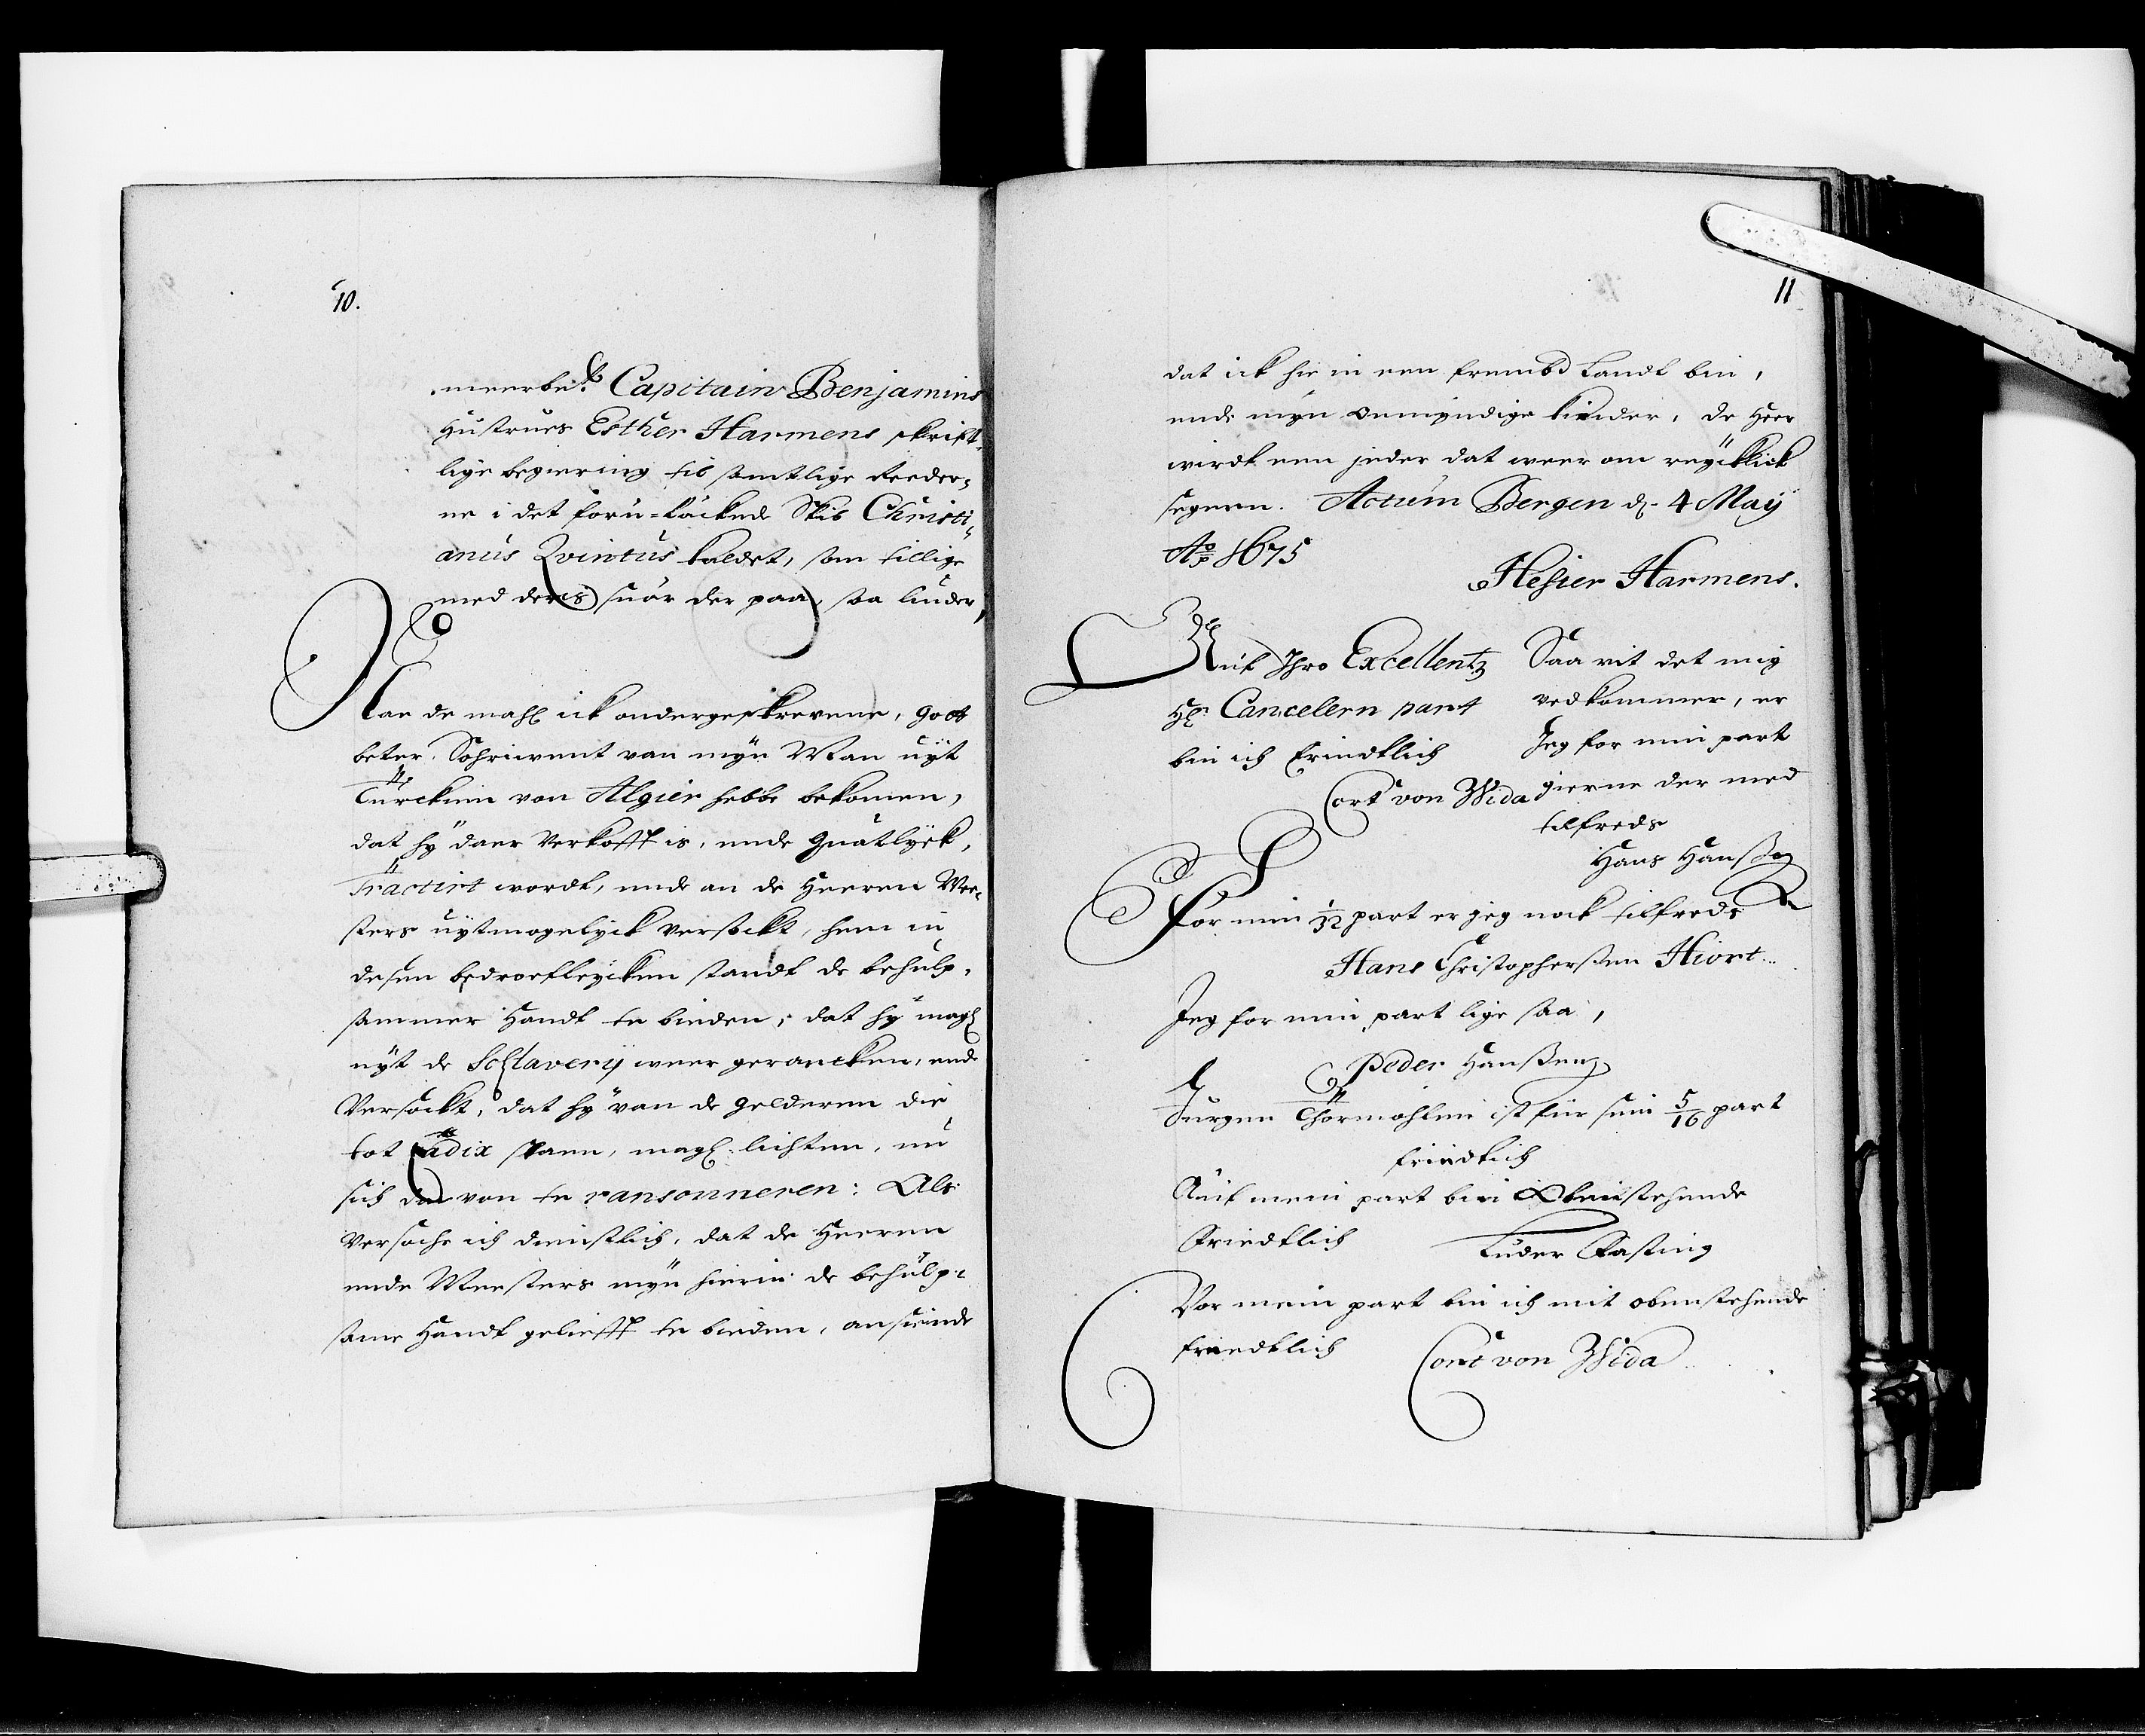 10.
meerbe:te Capitain Benjamins
Hustrues Esther Harmens skrift-
lige begiering til samtlige Reeder-
ne i det foru-lӱckede Skib Christi-
anus Qvintus kaldet, som tillige
med deris suar der paa, saa liuder,
Naer de mahl ick ondergeskrevene, Gott
beter, Schrivent van mӱn Man uӱt
Turckien von Algier hebbe bekomen,
dat hӱ daer verkofft is, ende quatlӱck,
Tractirt wordt, ende an de Heeren Mee-
sters uӱtmogelyck versockt, hem in
desen bedroefleycken standt de behulp-
sammer Handt te bieden, dat hӱ magh
uӱt de Schlaverij weer geraecken, ende
Versockt, dat hӱ van de gelderen die
tot Cadix staen, magh lichten, um
sich daer von te ransonneren: Als
Versoche ich dienstlich, dat de Heeren
ende Meesters mӱn hierin de behülp-
same Handt geliefft te bieden, ansiende
11
dat ick hie in een frembd Landt bin,
ende mӱn onmӱndige kinder, de Heer
wirdt een jeder dat weer om reӱcklick
segenen. Actum Bergen d. 4 Maij
Ao 1675
Hesier Harmens.
Auf Ihro Excellentz
Hr: Cancelern part
bin ich friedtlich
Cort von Wida
Saa vit det mig
vedkommer, er
Jeg for min part
gierne der med
tilfreds
Hans Hanßen
For min 1/32 part er jeg nock tilfreds
Hans Christophersen Hiort
Jeg for min part lige saa,
Peder Hanßen
Jurgen Thormøhlen ist für sein 5/16 part
friedtlich
Auf mein part bin Obenstehende
Friedtlich
Luder Fasting
Vor mein part bin ich mit obenstehende
friedtlich
Cort von Wida